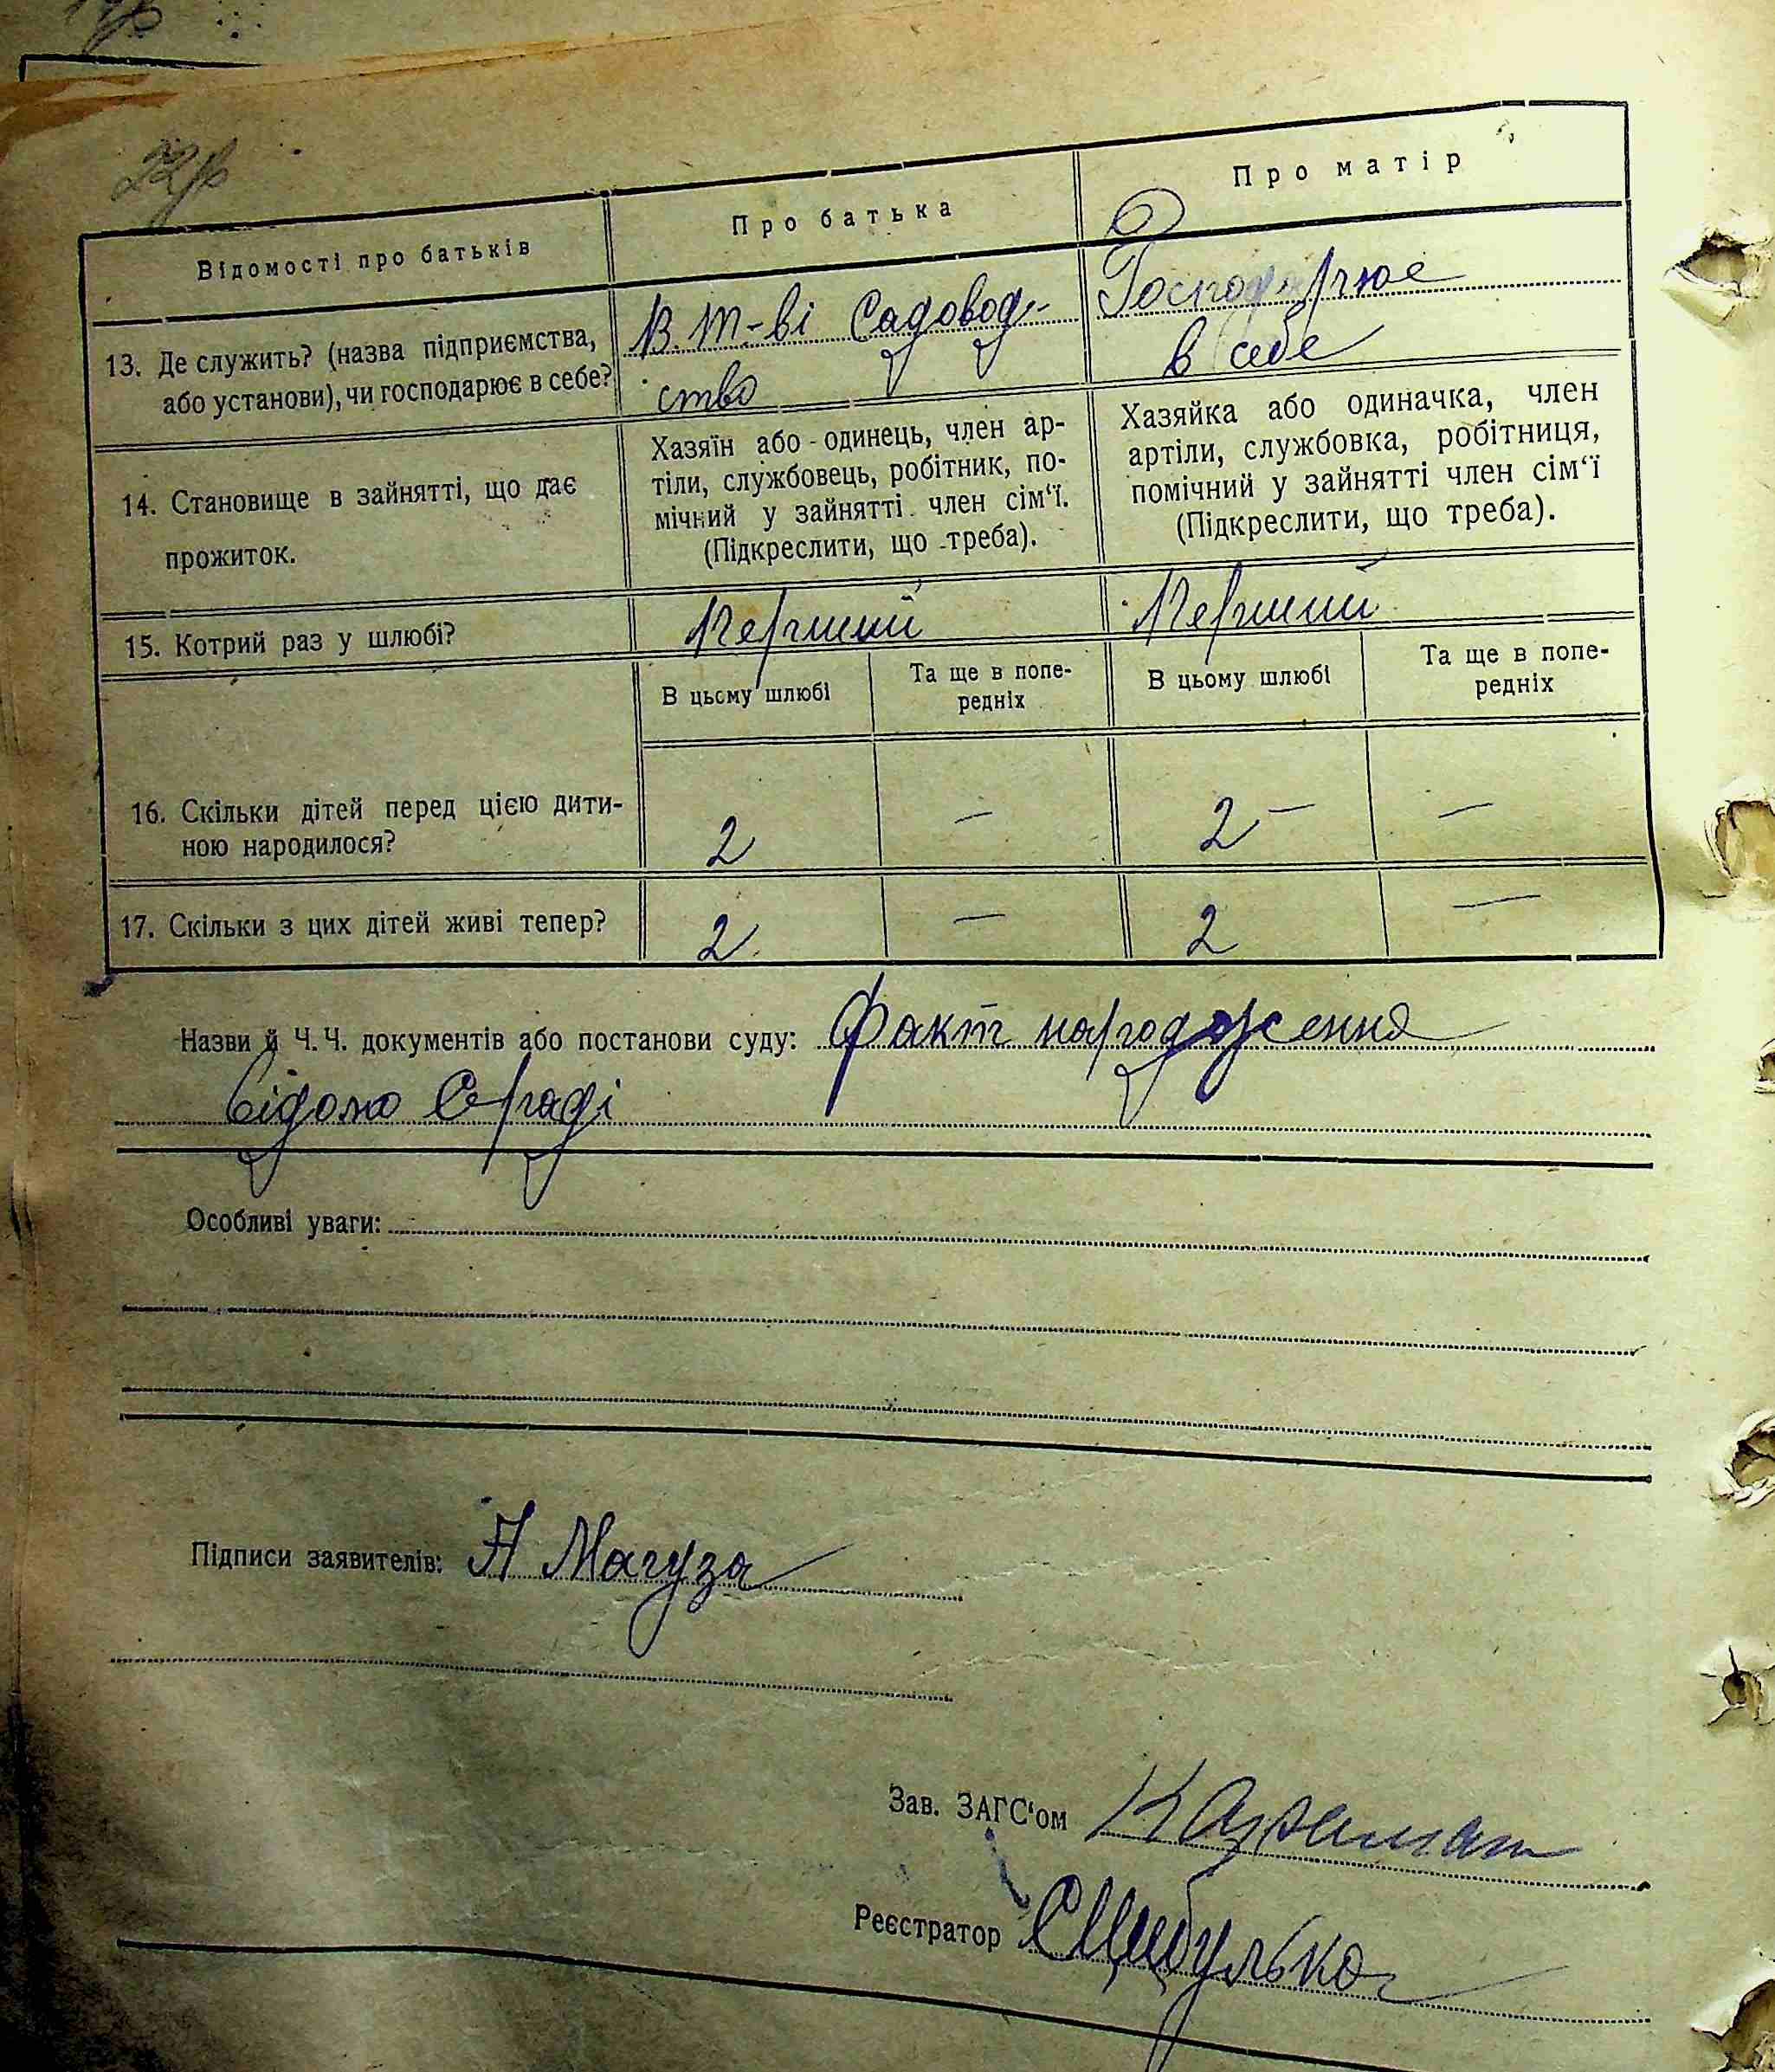 Відомості про батьків
Про батька
Про матір
13. Де служить? (назва підприємства,
або установи), чи господарює в себе?
В. т-ві Садовод-
ство
Господарює
в себе
14. Становище в зайнятті, що дає
прожиток.
Хазяїн або одинець, член ар-
тіли, службовець, робітник, по-
мічний у зайнятті член сім‘ї.
(Підкреслити, що треба).
Хазяйка або одиначка, член
артіли, службовка, робітниця,
помічний у зайнятті член сім‘ї
(Підкреслити, що треба).
15. Котрий раз у шлюбі?
Перший
Перший
В цьому шлюбі
Та ще в попе-
редніх
В цьому шлюбі
Та ще в попе-
редніх
16. Скільки дітей перед цією дити-
ною народилося?
2 — 2 — —
17. Скільки з цих дітей живі тепер?
2 — 2 —
Назви й Ч.Ч. документів або постанови суду: Факт народження
відомо С/раді
Особливі уваги:
Підписи заявителів: А Магуза
Зав. ЗАГС‘ом
Реєстратор СЦибулько